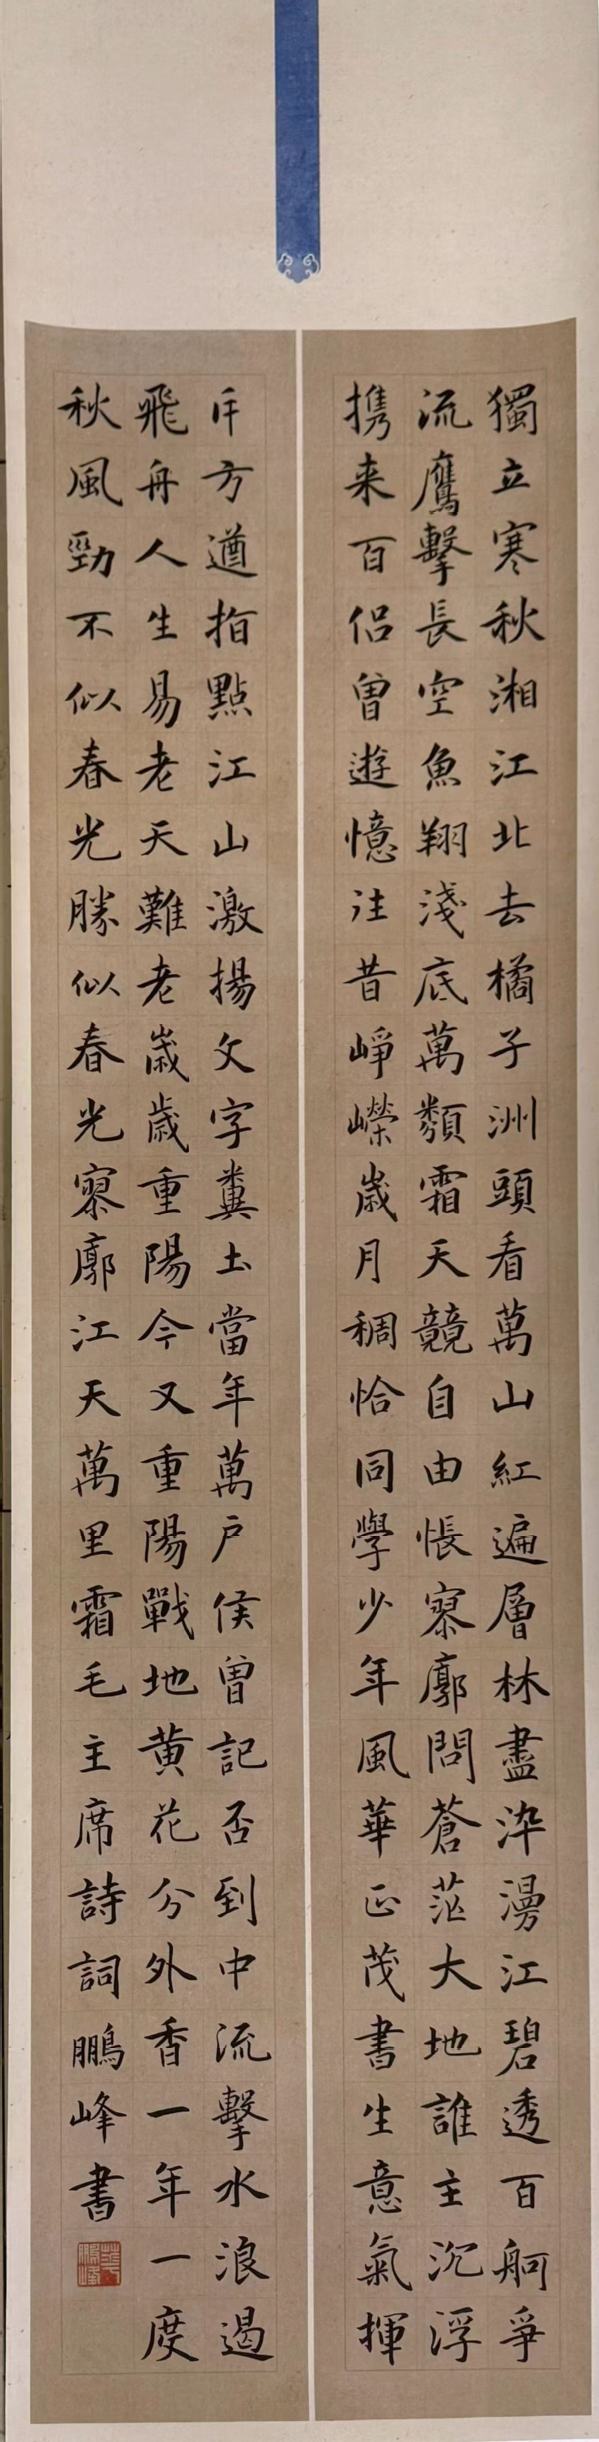 獨立寒秋湘江北去橘子洲頭看萬山紅遍層林盡染漫江碧透百舸爭
流鷹擊長空魚翔淺底萬類霜天競自由悵寥廓問蒼茫大地誰主沉浮
携来百侣曾遊憶往昔崢嶸歲月稠恰同學少年風華正茂書生意氣揮
斥方遒指點江山激揚文字糞土當年萬戶侯曾記否到中流擊水浪遏
飛舟人生易老天難老歲歲重陽今又重陽戰地黄花分外香一年一度
秋風勁不似春光勝似春光寥廓江天萬里霜毛主席詩詞鵬峰書